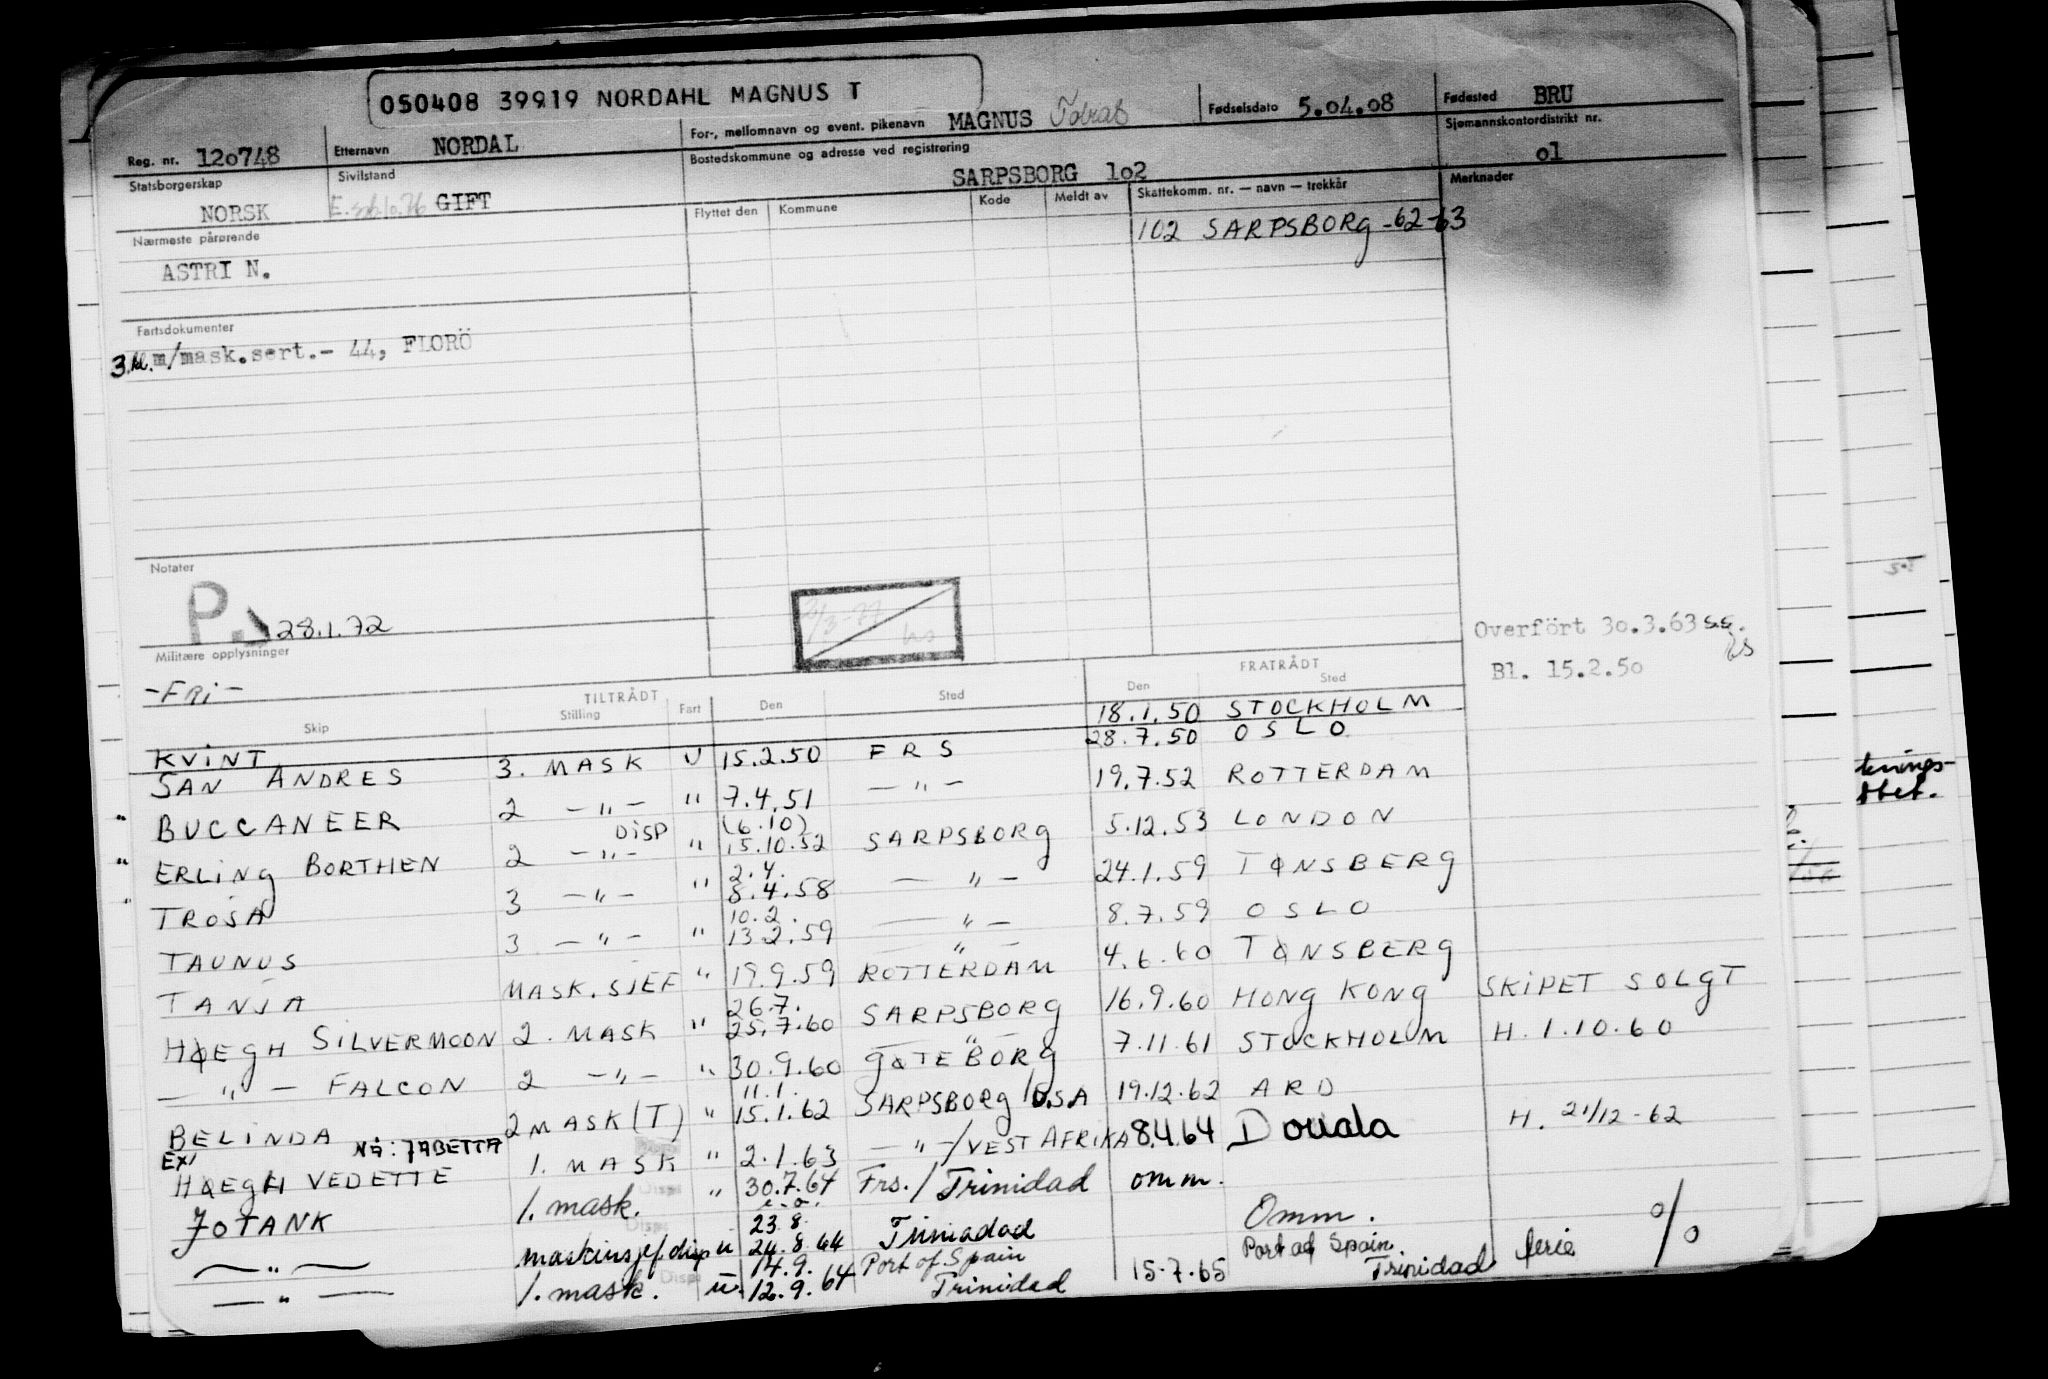 050408 39919 NORDAHL MAGNUS T
Reg. nr. 120748 Etternavn NORDAL For-, mellomnavn og event. pikenavn MAGNUS Tobias Fødselsdato 5.04.08 Fødested BRU
Statsborgerskap NORSK Sivilstand GIFT Bostedskommune og adresse ved registrering SARPSBORG 102 Sjømannskontordistrikt nr. 01
Nærmeste pårørende Flyttet den Kommune Kode Meldt av Skattekomm. nr. — navn — trekkår Merknader
ASTRI N. 102 SARPSBORG -62-63
Fartsdokumenter
3.kl. m/mask.sert.- 44, FLORÖ
Notater
P. 28.1.72
Overfört 30.3.63 s.s.
Militære opplysninger
-FRI- Bl. 15.2.50
TILTRÅDT FRATRÅDT
Skip Stilling Fart Den Sted Den Sted
KVINT 18.1.50 STOCKHOLM
SAN ANDRES 3. MASK U 15.2.50 FRS 28.7.50 OSLO
" BUCCANEER 2 — " — " 7.4.51 — " — 19.7.52 ROTTERDAM
" ERLING BORTHEN 2 — " — DISP " (6.10) 15.10.52 SARPSBORG 5.12.53 LONDON
" TROSA 3 — " — " 2.4. 8.4.58 — " — 24.1.59 TØNSBERG
TAUNUS 3 — " — " 10.2. 13.2.59 — " — 8.7.59 OSLO
TANJA MASK.SJEF " 19.9.59 " ROTTERDAM 4.6.60 TØNSBERG
HØEGH SILVERMOON 2. MASK " 26.7. 25.7.60 SARPSBORG 16.9.60 HONG KONG SKIPET SOLGT
— " — FALCON 2 — " — " 30.9.60 GØTEBORG 7.11.61 STOCKHOLM H. 1.10.60
BELINDA 2 MASK (T) " 11.1. 15.1.62 SARPSBORG/USA 19.12.62 ARD
EX/ HØEGH VEDETTE NÅ: JABETTA 1. MASK " 2.1.63 — " —/VEST AFRIKA 8.4.64 Douala H. 21/12-62
JOTANK 1. mask. " 30.7.64 Frs./Trinidad omm.
— " — maskinsjef disp u 23.8. 24.8.64 Trinadad Omm.
— " — 1. mask. u. 14.9. 12.9.64 Port of Spain Trinidad 15.7.65 Port of Spain Trinidad ferie %